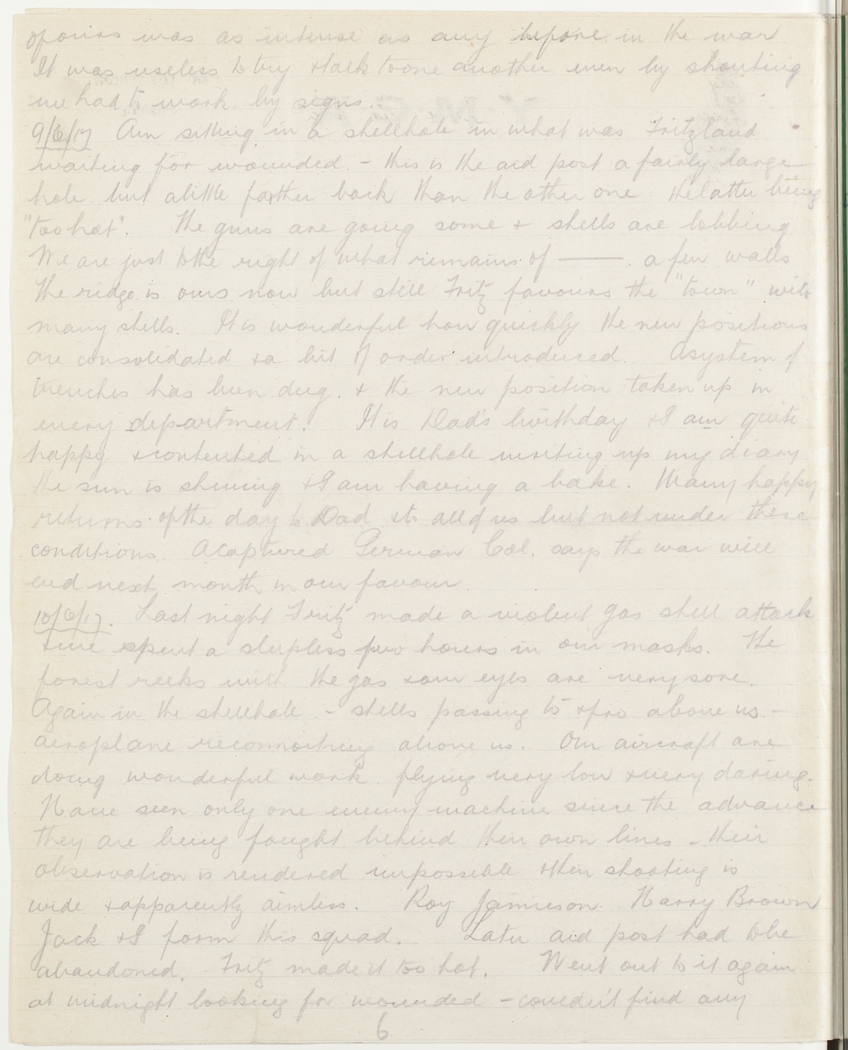 of ours was as intense as any before in the war
It was useless to try & talk to one another even by shouting
we had to work by signs.
9/6/17 Am sitting in a shellhole in what was Fritzland
waiting for wounded. - this is the aid post a fairly large
hole but a little farther back than the other one the latter being
"too hot". The guns are going some & shells are lobbing
We are just to the right of what remains of ——. a few walls
The ridge is ours now but still Fritz favours the "town" with
many shells. It is wonderful how quickly the new positions
are consolidated & a bit of order introduced. A system of
trenches has been dug. & the new position taken up in
every department. It is Dad's birthday & I am quite
happy & contented in a shellhole writing up my diary
the sun is shining & I am having a bake. Many happy
returns of the day to Dad & to all of us but not under these
conditions. A captured German Col. says the war will
end next month in our favour.
10/6/17. Last night Fritz made a violent gas shell attack
& we spent a sleepless two hours in our masks. The
forest reeks with the gas & our eyes are very sore.
Again in the shellhole - shells passing to & fro above us -
aeroplane reconnoitring above us. Our aircraft are
doing wonderful work flying very low & very daring.
Have seen only one enemy machine since the advance
they are being fought behind their own lines - their
observation is rendered impossible & their shooting is
wide & apparently aimless. Roy Jamieson Harry Brown
Jack & I form this squad. Later aid post had to be
abandoned. Fritz made it too hot. Went out to it again
at midnight looking for wounded - couldn't find any
6